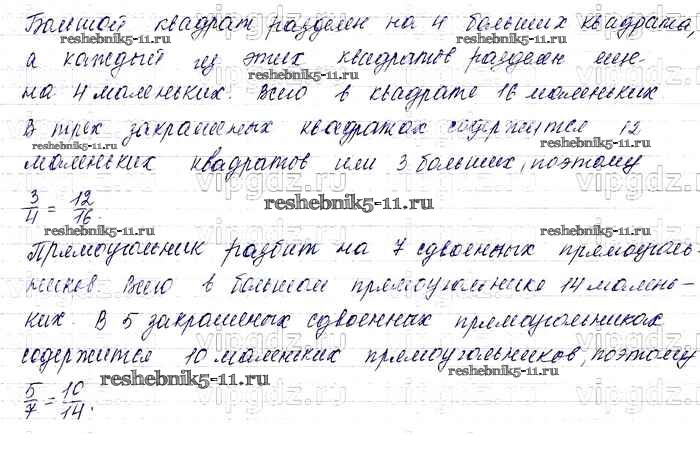 Большой квадрат разделен на 4 больших квадрата,
reshebnik5-11.ru reshebnik5-11.ru
а каждый из этих квадратов разделен еще
на 4 маленьких. Всего в квадрате 16 маленьких
В трех закрашеных квадратах содержится 12
маленьких квадратов или 3 больших, поэтому
3/4 = 12/16.
reshebnik5-11.ru
vipgdz.ru
reshebnik5-11.ru reshebnik5-11.ru
Прямоугольник разбит на 7 сдвоенных прямоуголь-
ников. Всего в большом прямоугольнике 14 малень-
ких. В 5 закрашеных сдвоенных прямоугольниках
содержится 10 маленьких прямоугольников, поэтому
reshebnik5-11.ru reshebnik5-11.ru
5/7 = 10/14.
vipgdz.ru